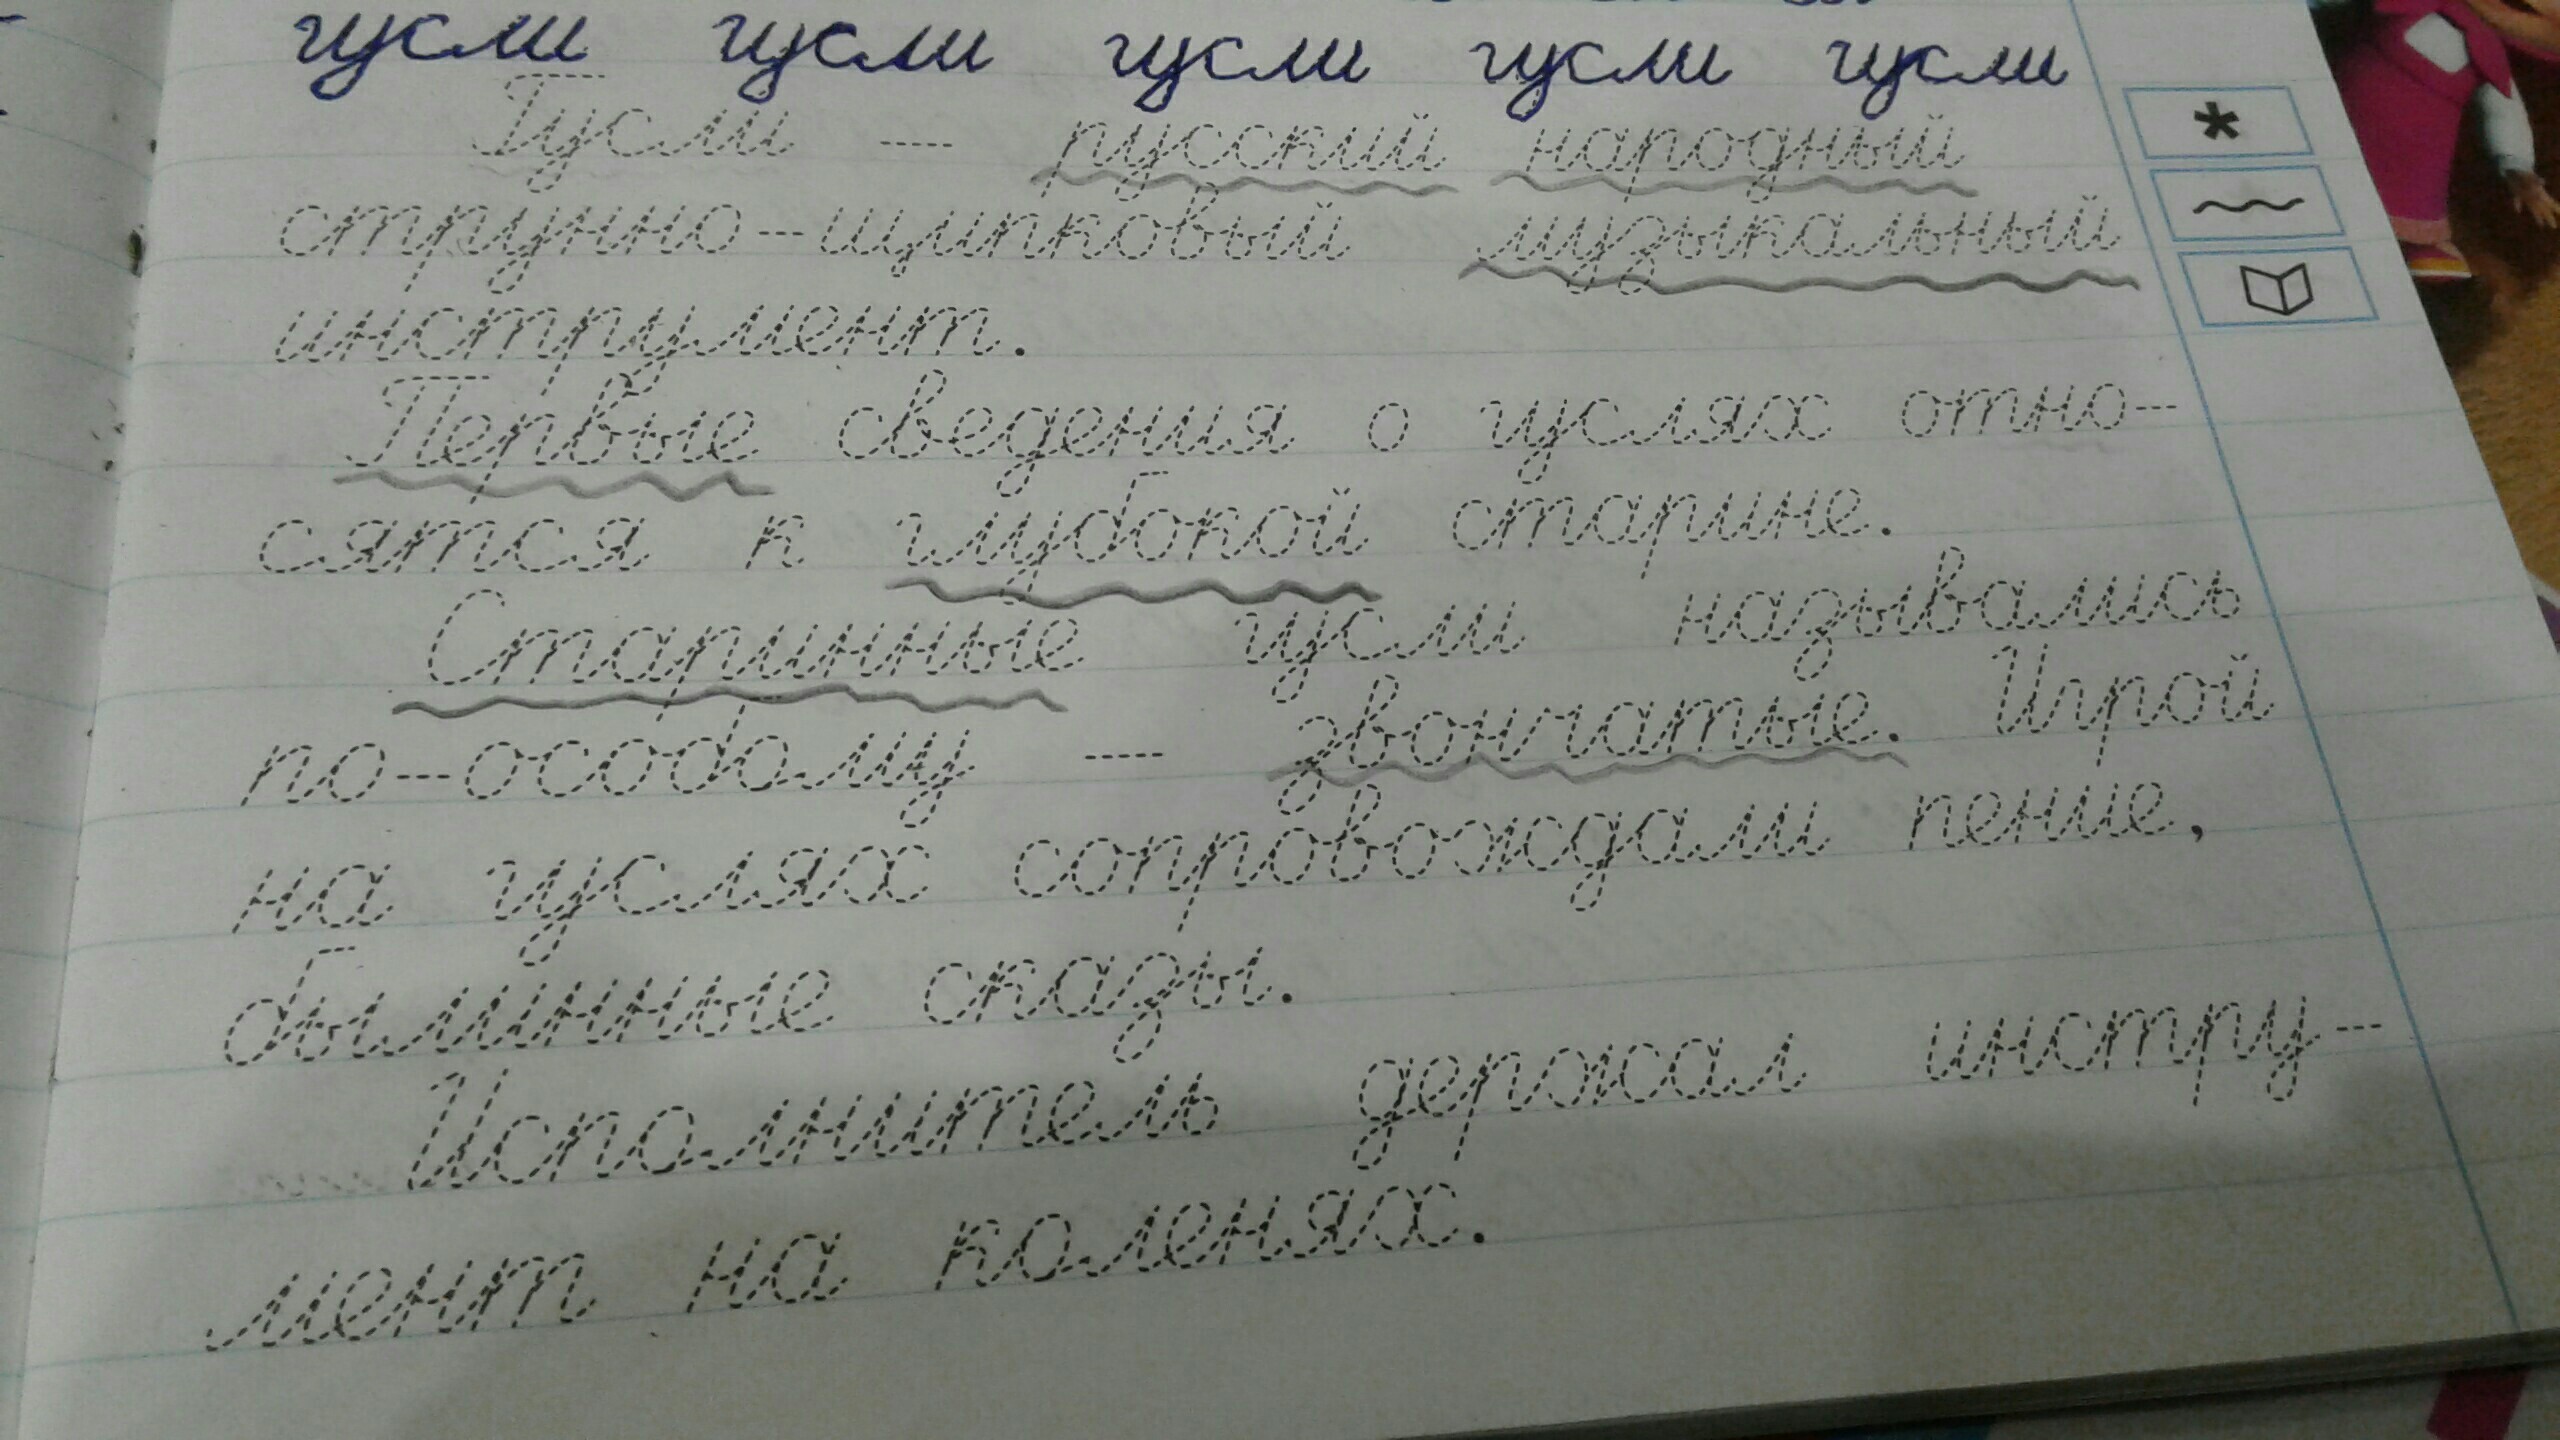 гусли гусли гусли гусли гусли
Гусли - русский народный
струнно-щипковый музыкальный
инструмент.
Первые сведения о гуслях отно-
сятся к глубокой старине.
Старинные гусли назывались
по-особому - звончатые. Игрой
на гуслях сопровождали пение,
былинные сказы.
Исполнитель держал инстру-
мент на коленях.